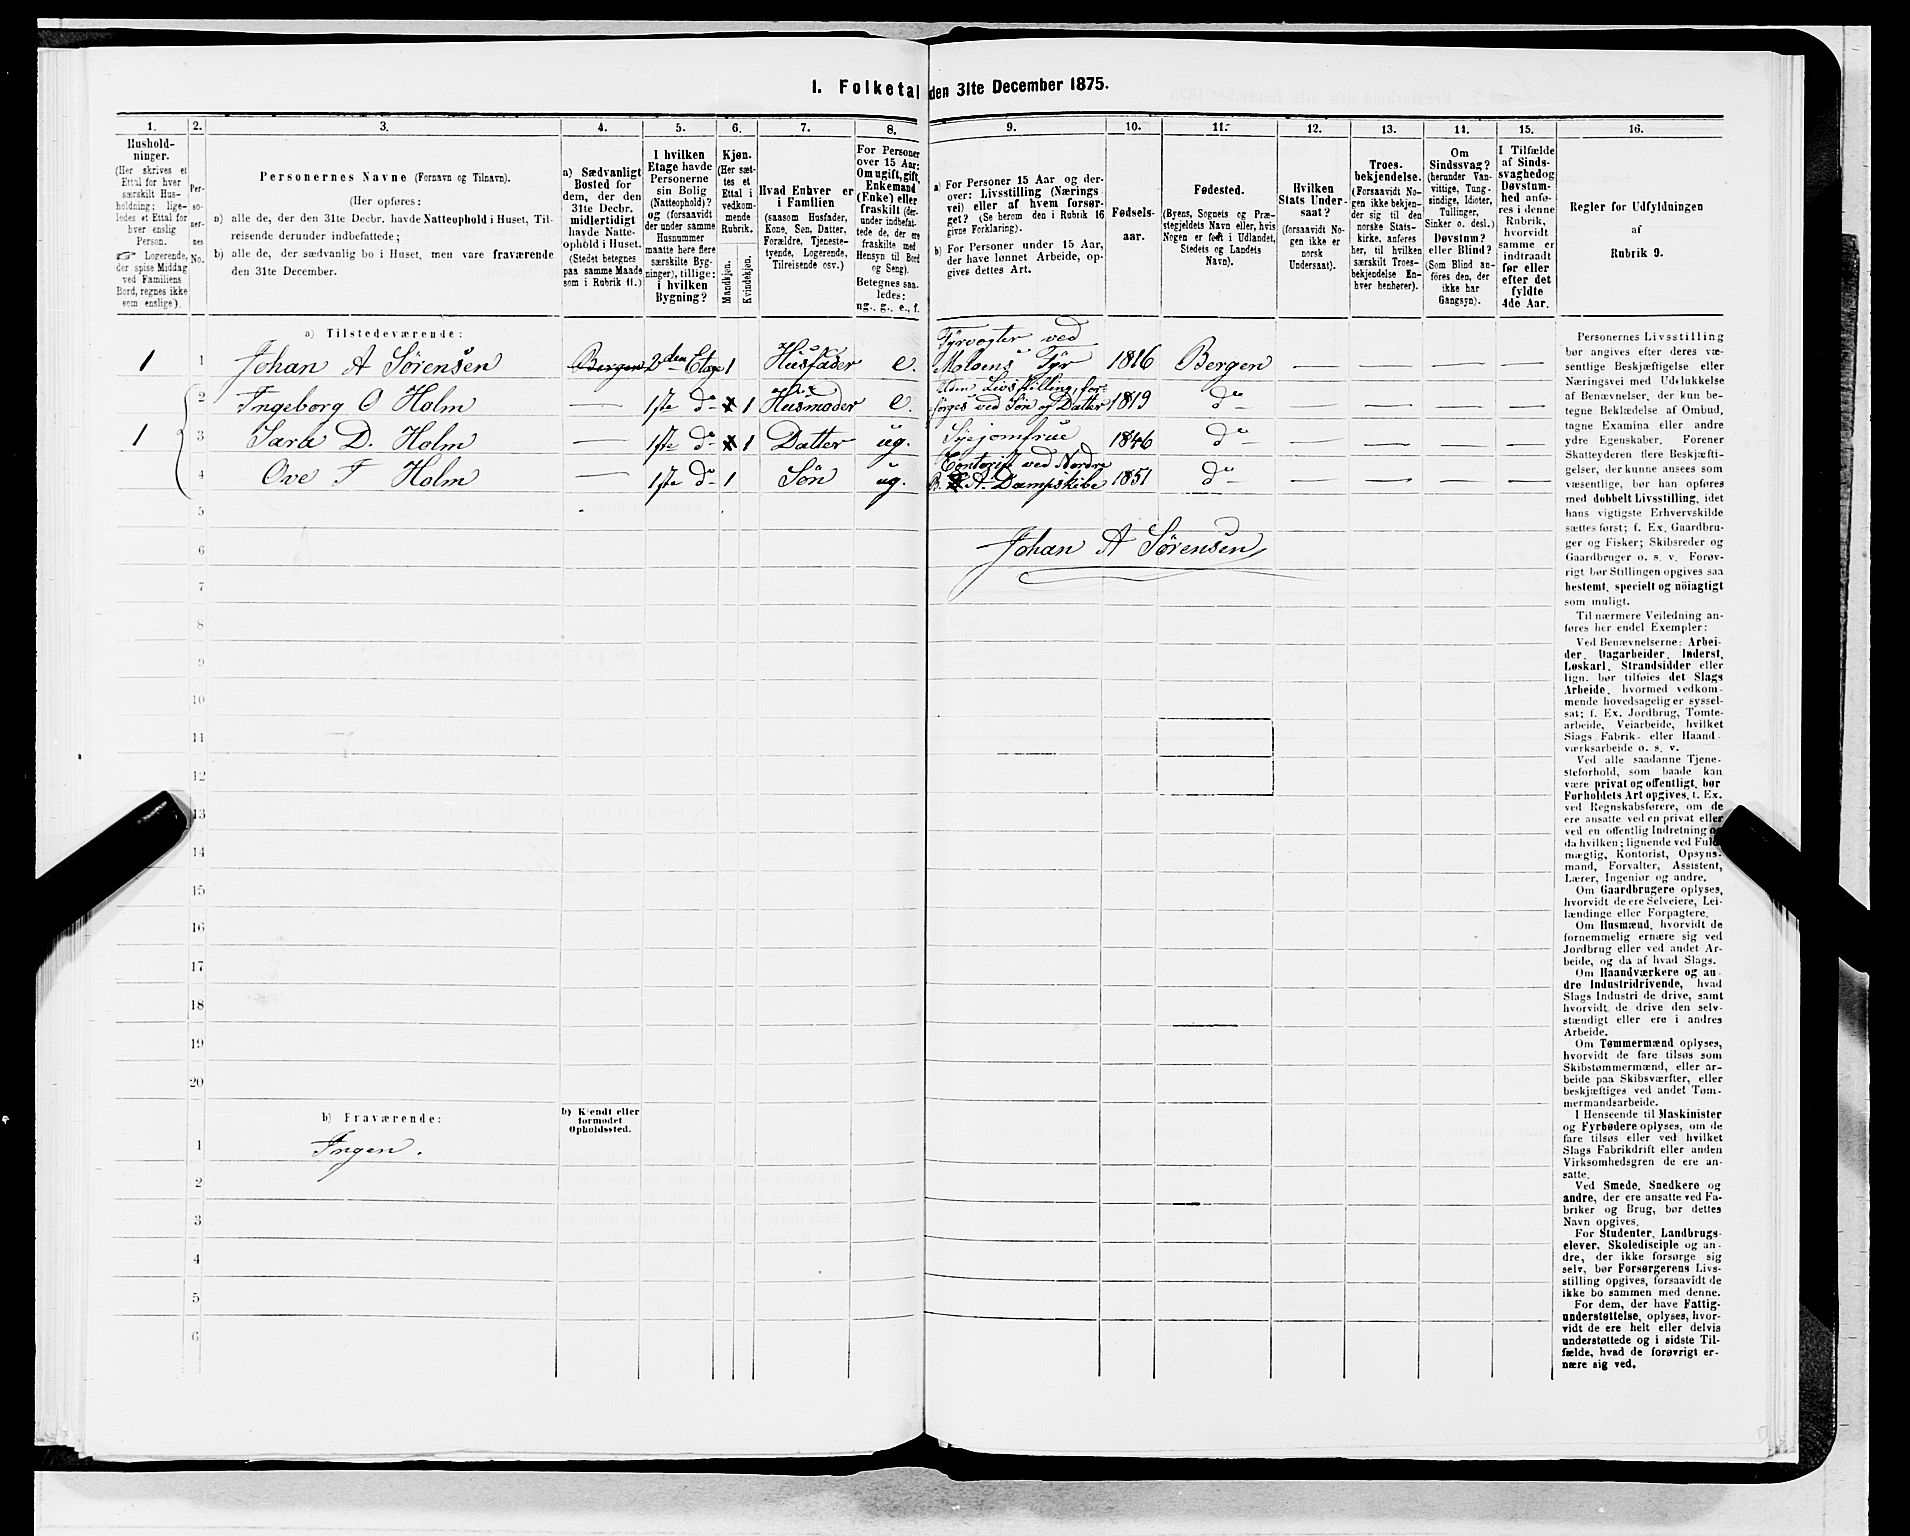 1. Folketal den 31te December 1875.
1.
2.
3.
4.
5.
6.
7.
8.
9.
10.
11.
12.
13.
14.
15.
16.
Hushold-
ninger.
(Her skrives et
Ettal for hver
særskilt Hus-
holdning; lige-
ledes et Ettal for
hver enslig
Person.
☞ Logerende,
der spise Middag
ved Familiens
Bord, regnes ikke
som enslige).
Per-
so-
ner-
nes
No.
Personernes Navne (Fornavn og Tilnavn).
(Her opføres:
a) alle de, der den 31te Decbr. havde Natteophold i Huset, Til-
reisende derunder indbefattede;
b) alle de, der sædvanlig bo i Huset, men vare fraværende
den 31te December.
a) Sædvanligt
Bosted for
dem, der den
31te Decbr.
midlertidigt
havde Natte-
ophold i Huset.
(Stedet betegnes
paa samme Maade
som i Rubrik 11.)
I hvilken
Etage havde
Personerne
sin Bolig
(Natteophold)?
og (forsaavidt
der under samme
Husnummer
maatte høre flere
særskilte Byg-
ninger), tillige:
i hvilken
Bygning?
Kjøn.
(Her sæt-
tes et
Ettal i
vedkom-
mende
Rubrik.
Mandkjøn.
Kvindekjøn.
Hvad Enhver er
i Familien
(saasom Husfader,
Kone, Søn, Datter,
Forældre, Tjeneste-
tyende, Logerende,
Tilreisende osv.)
For Personer
over 15 Aar:
Om ugift, gift,
Enkemand
(Enke) eller
fraskilt (der-
under indbefat-
tede de, der ere
fraskilte med
Hensyn til Bord
og Seng).
Betegnes saa-
ledes:
ug., g., e., f.
a) For Personer 15 Aar og der-
over: Livsstilling (Nærings
vei) eller af hvem forsør-
get? (Se herom den i Rubrik 16
givne Forklaring).
b) For Personer under 15 Aar,
der have lønnet Arbeide, op-
gives dettes Art.
Fødsels-
aar.
Fødested.
(Byens, Sognets og Præ-
stegjeldets Navn eller, hvis
Nogen er født i Udlandet,
Stedets og Landets
Navn).
Hvilken
Stats Under-
saat?
(forsaavidt No-
gen ikke er
norsk
Undersaat).
Troes-
bekjendelse.
(Forsaavidt No-
gen ikke bekjen-
der sig til den
norske Stats-
kirke, anføres
her, til hvilken
særskilt Troes-
bekjendelse En-
hver henhører).
Om
Sindssvag?
(herunder Van-
vittige, Tung-
sindige, Idioter,
Tullinger,
Sinker o. desl.)
Døvstum?
eller Blind?
(Som Blind an-
føres den, der
ikke har
Gangsyn).
I Tilfælde
af Sinds-
svaghed og
Døvstum-
hed anfø-
res i denne
Rubrik,
hvorvidt
samme er
indtraadt
før eller
efter det
fyldte
4de Aar.
Regler for Udfyldningen
af
Rubrik 9.
a) Tilstedeværende:
1 1 Johan A Sørensen Bergen 2den Etage 1 Husfader e. Fyrvogter ved
Moloens Fyr 1816 Bergen — — — —
2 Ingeborg O Holm — 1ste do 1 Husmoder e. Uden Livsstilling, for-
sørges ved Søn og Datter 1819 do — — — —
1 3 Sara D. Holm — 1ste do 1 Datter ug. Syejomfrue 1846 do — — — —
4 Ove T Holm — 1ste do 1 Søn ug. Contorist ved Nordre
B. A. Dampskibe 1851 do — — — —
5
6
Johan A Sørensen
7
8
9
10
11
12
13
14
15
16
17
18
19
20
b) Fraværende:
b) Kjendt eller
formodet
Opholdssted.
1 Ingen.
2
3
4
5
6
Personernes Livsstilling
bør angives efter deres væ-
sentlige Beskjæftigelse eller
Næringsvei med Udelukkelse
af Benævnelser, der kun be-
tegne Beklædelse af Ombud,
tagne Examina eller andre
ydre Egenskaber. Forener
Skatteyderen flere Beskjæfti-
gelser, der kunne ansees som
væsentlige, bør han opføres
med dobbelt Livsstilling, idet
hans vigtigste Erhvervskilde
sættes først; f. Ex. Gaardbru-
ger og Fisker; Skibsreder og
Gaardbruger o. s. v. Forøv-
rigt bør Stillingen opgives saa
bestemt, specielt og nöiagtigt
som muligt.
Til nærmere Veiledning an-
føres her endel Exempler:
Ved Benævnelserne: Arbei-
der, Dagarbeider, Inderst,
Løskarl, Strandsidder eller
lign. bør tilføies det Slags
Arbeide, hvormed vedkom-
mende hovedsagelig er syssel-
sat; f. Ex. Jordbrug, Tomte-
arbeide, Veiarbeide, hvilket
Slags Fabrik- eller Haand-
værksarbeide o. s. v.
Ved alle saadanne Tjene-
steforhold, som baade kan
være privat og offentligt, bør
Forholdets Art opgives, f. Ex.
ved Regnskabsførere, om de
ere ansatte ved en privat eller
ved en offentlig Indretning og
da hvilken; lignende ved Fuld-
mægtig, Kontorist, Opsyns-
mand, Forvalter, Assistent,
Lærer, Ingeniør og andre.
Om Gaardbrugere oplyses,
hvorvidt de ere Selveiere, Lei-
lændinge eller Forpagtere.
Om Husmænd, hvorvidt de
fornemmelig ernære sig ved
Jordbrug eller ved andet Ar-
beide, og da af hvad Slags.
Om Haandværkere og an-
dre Industridrivende, hvad
Slags Industri de drive, samt
hvorvidt de drive den selv-
stændigt eller ere i andres
Arbeide.
Om Tømmermænd oplyses,
hvorvidt de fare tilsøs som
Skibstømmermænd, eller ar-
beide paa Skibsværfter, eller
beskjæftiges ved andet Tøm-
mermandsarbeide.
I Henseende til Maskinister
og Fyrbødere oplyses, om de
fare tilsøs eller ved hvilket
Slags Fabrikdrift eller anden
Virksomhedsgren de ere an-
satte.
Ved Smede, Snedkere og
andre, der ere ansatte ved Fa-
briker og Brug, bør dettes
Navn opgives.
For Studenter, Landbrugs-
elever, Skoledisciple og an-
dre, der ikke forsørge sig
selv, bør Forsørgerens Livs-
stilling opgives, forsaavidt de
ikke bo sammen med denne.
For dem, der have Fattig-
understøttelse, oplyses, hvor-
vidt de ere helt eller delvis
understøttede og i sidste Til-
fælde, hvad de forøvrigt er-
nære sig ved.